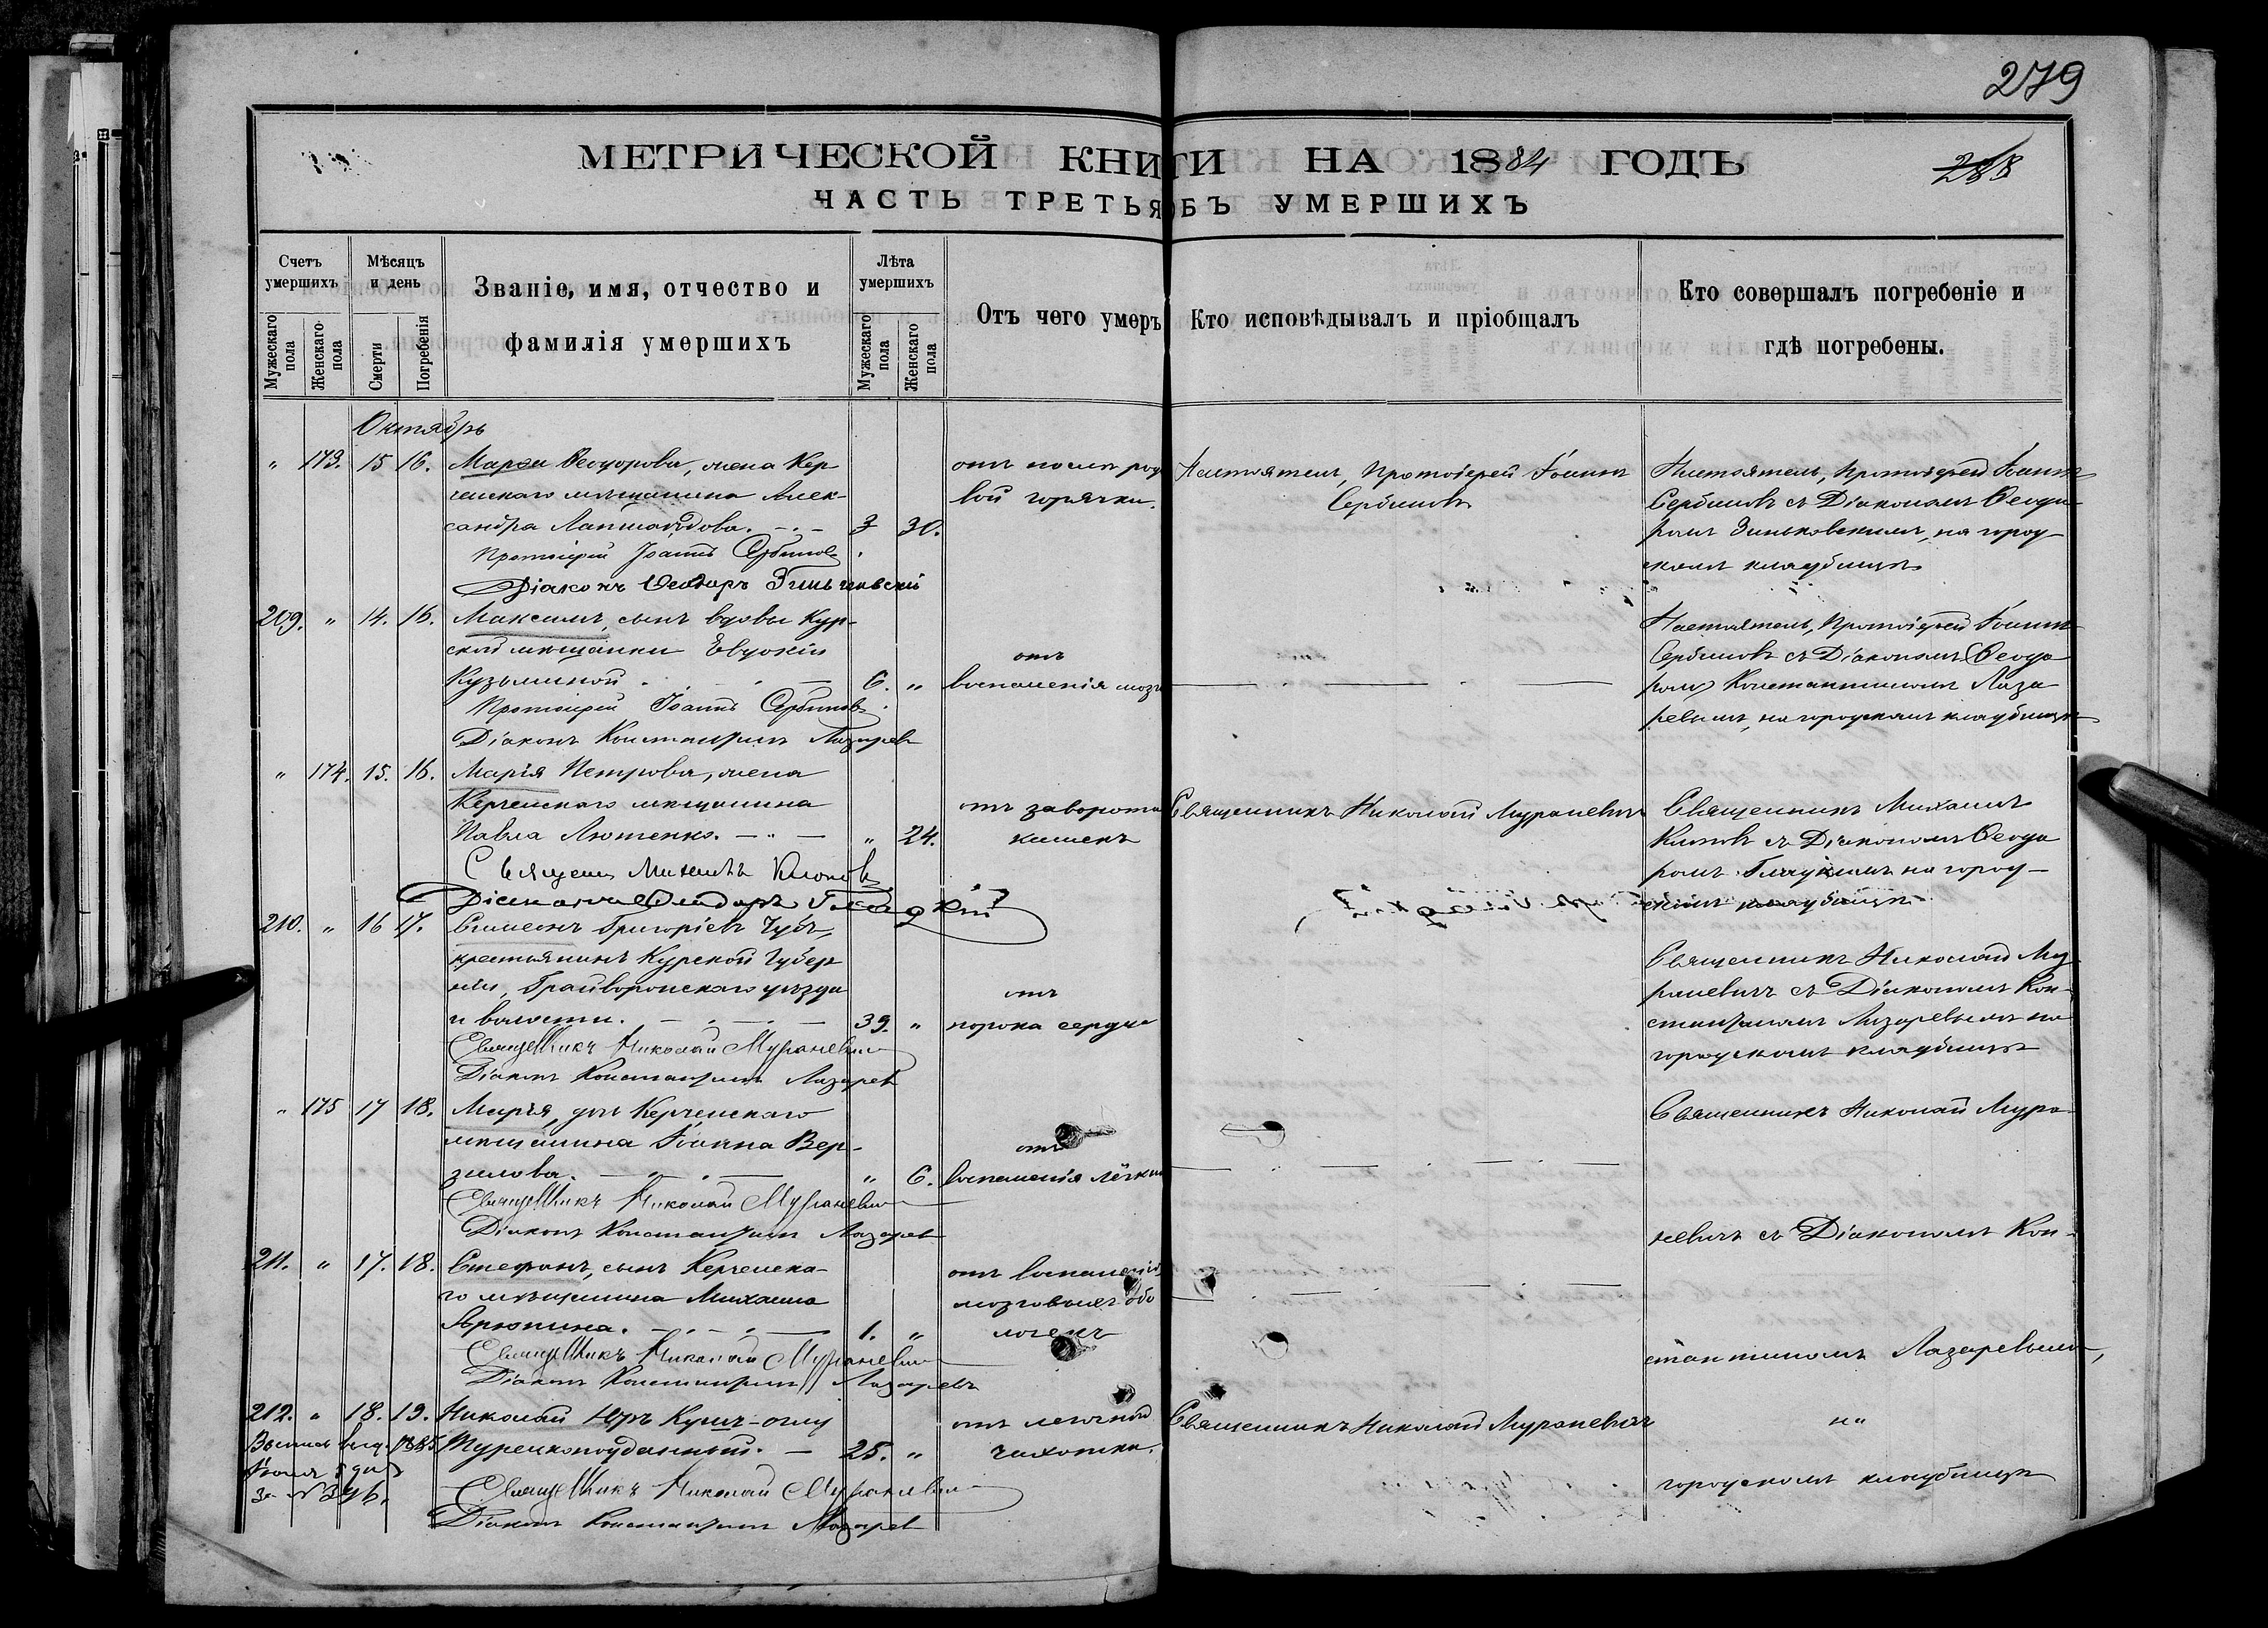 279
МЕТРИЧЕСКОЙ КНИГИ НА 1884 ГОДЪ
288
ЧАСТЬ ТРЕТЬЯ ОБЪ УМЕРШИХЪ
Счетъ умершихъ
Мужескаго пола
Женскаго пола
Мѣсяцъ и день
Смерти
Погребенія
Званіе, имя, отчество и
фамилія умершихъ
Лѣта умершихъ
Мужескаго пола
Женскаго пола
Отъ чего умеръ
Кто исповѣдывалъ и пріобщалъ
Кто совершалъ погребеніе и
гдѣ погребены.
Октябрь
" 173. 15 16. Марѳа Ѳеодорова, жена Кер
ченскаго мѣщанина Алек-
сандра 30.
Протоіерей Іоаннъ Сербиновъ
Діаконъ Ѳеодоръ Зиньковскій
отъ после род
вой горячки.
Настоятель, Протоіерей Іоаннъ
Сербиновъ
Настоятель, Протоіерей Іоаннъ
Сербиновъ съ Діакономъ Ѳеодо
ромъ Зиньковскимъ, на город
скомъ кладбищѣ
209. " 14. 16. Максимъ, сынъ вдовы Кур-
ской мѣщанки Евдокіи
Кузьминой 6. "
Протоіерей Іоаннъ Сербиновъ
Діаконъ Константинъ Лазаревъ
отъ
воспаленія мозга
Настоятель, Протоіерей Іоаннъ
Сербиновъ съ Діакономъ Ѳеодо
ромъ Константиномъ Лаза
ревымъ, на городскомъ кладбищѣ
" 174. 15. 16. Марія Петрова, жена
Керченскаго мѣщанина
Павла Лютенко. " 24.
Священ Михаилъ Клоповъ
Діаконъ Ѳеодоръ Гладкій
отъ заворота
кишекъ
Священникъ Николай Мураневичъ
Священникъ Михаилъ
Клоповъ съ Діакономъ Ѳеодо
ромъ Гладкимъ на город-
скомъ кладбищѣ
210. " 16 17. Симеонъ Григоріевъ Чубъ,
крестьянинъ Курской Губер
ніи, Грайворонскаго уѣзда
и волости. 39. "
Священникъ Николай Мураневичъ
Діаконъ Константинъ Лазаревъ
отъ
порока сердца
Священникъ Николай Му
раневичъ съ Діакономъ Кон-
стантиномъ Лазаревымъ на
городскомъ кладбищѣ
" 175 17 18. Марія, дочь Керченскаго
мѣщанина Іоанна Вер-
зилова. " 6.
Священникъ Николай Мураневичъ
Діаконъ Константинъ Лазаревъ
отъ
воспаленія лёгких
Священникъ Николай Мура
невичъ съ Діакономъ Кон-
211. " 17. 18. Стефанъ, сынъ Керченска-
го мѣщанина Михаила
Арюпина. 1. "
Священникъ Николай Мураневичъ
Діаконъ Константинъ Лазаревъ
отъ воспаленія
мозговыхъ обо
лочекъ
стантиномъ Лазаревымъ,
212. " 18. 19. Николай Юръ Кушъ-оглу
Турецкоподданный. 25. "
Священникъ Николай Мураневичъ
Діаконъ Константинъ Лазаревъ
отъ легочной
чахотки.
Священникъ Николай Мураневичъ
на
городскомъ кладбищѣ
1885
за №